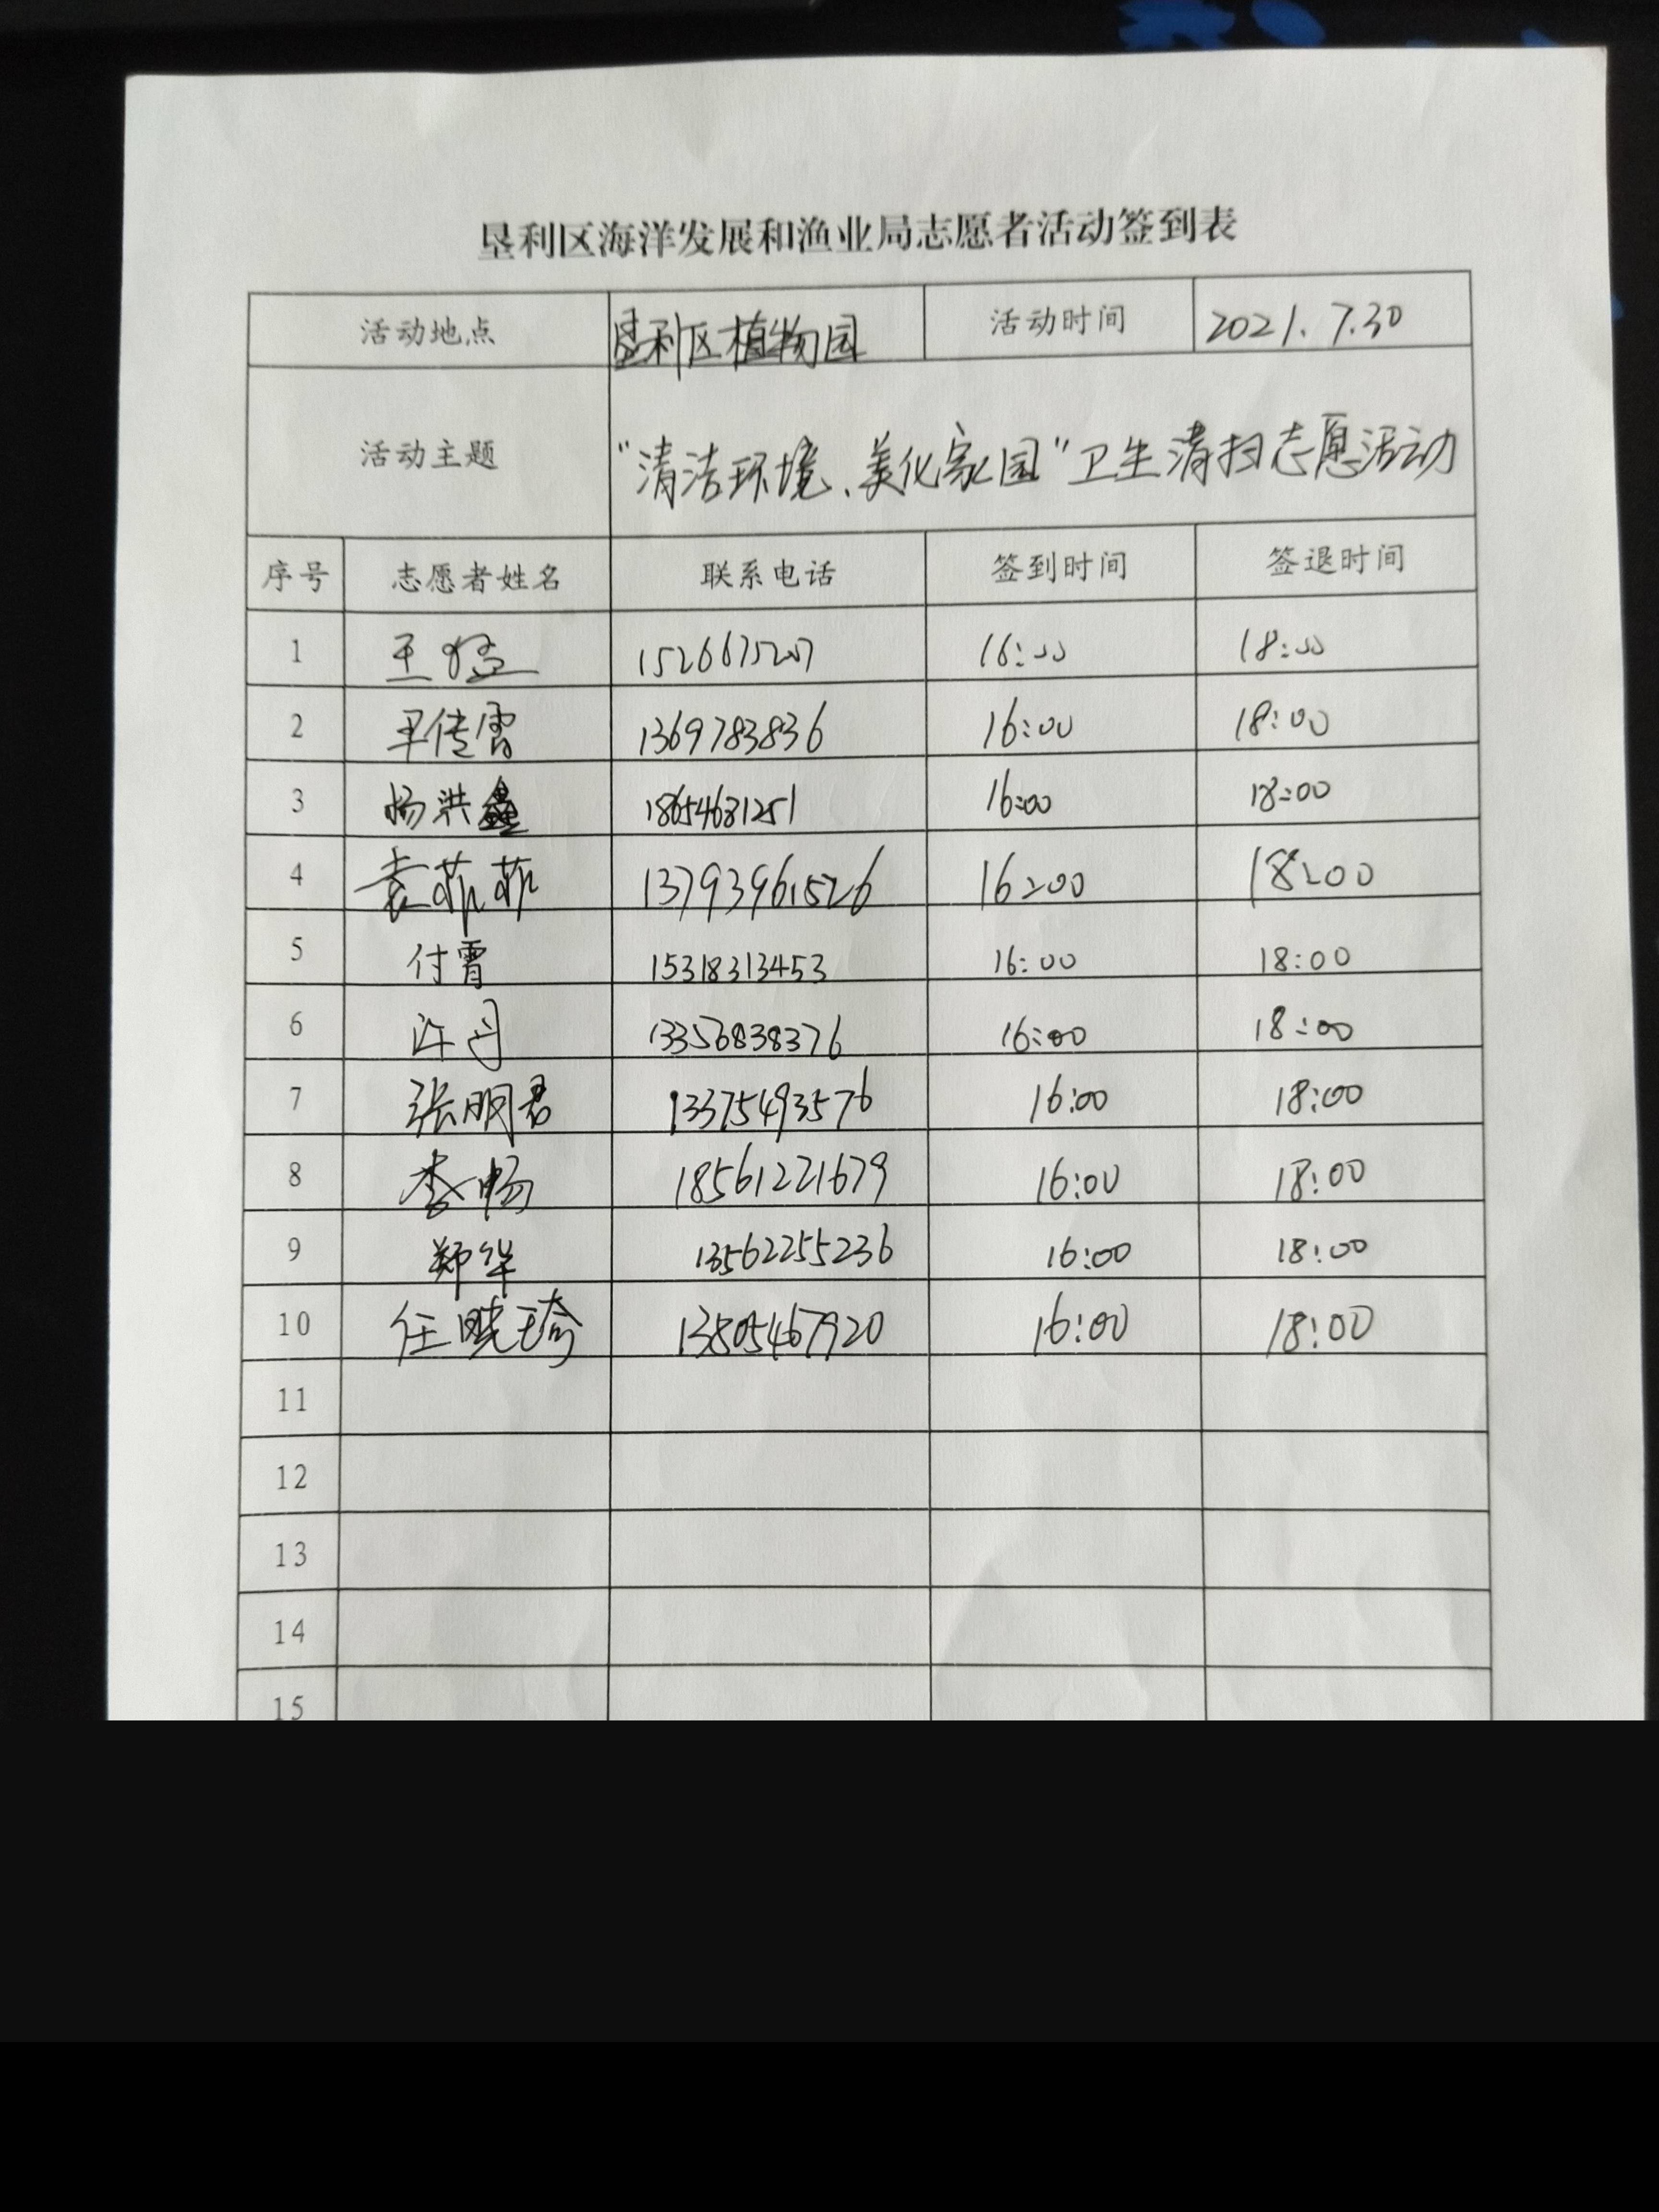 垦利区海洋发展和渔业局志愿者活动签到表
活动地点 垦利区植物园 活动时间 2021.7.30
活动主题 “清洁环境、美化家园”卫生清扫志愿活动
序号 志愿者姓名 联系电话 签到时间 签退时间
1 王猛 16:00 18:00
2 传雷 1369783836 16:00 18:00
3 杨洪鑫 18654631251 16:00 18:00
4 袁菲菲 13793961526 16:00 18:00
5 付霄 15318313453 16:00 18:00
6 许丹 13356838376 16:00 18:00
7 张明君 13375493576 16:00 18:00
8 李畅 18561221679 16:00 18:00
9 郑华 13562255236 16:00 18:00
10 任晓琦 13505467920 16:00 18:00
11
12
13
14
15